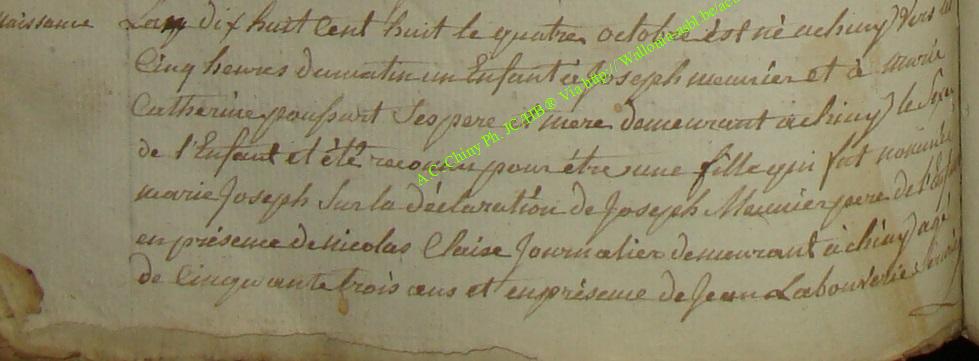 naissance L'an dix huit cent huit le quatre octobre est né a chiny vers les
Cinq heures du matin un Enfant à Joseph meunier et à marie
Catherine poupart Ses pere et mere demeurant a chiny le Sexe
de l'Enfant et été reconnu pour être une fille qui fut nommée
marie Joseph Sur la déclaration de Joseph Meunier pere de l'Enfant
en présence de Nicolas Claise Journalier demeurant à chiny agé
de Cinquante trois ans et en présence de Jean Labouverie
A C- Chiny Ph. JC /HB ® Via http:// Wallonia-asbl.be/